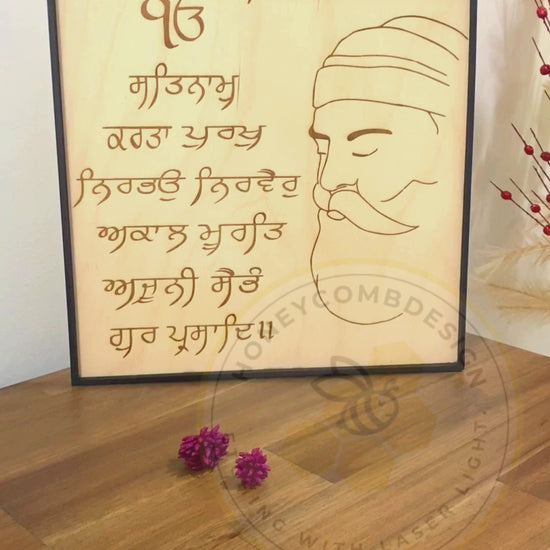 ੴ
ਸਤਿਨਾਮੁ
ਕਰਤਾ ਪੁਰਖੁ
ਨਿਰਭਉ ਨਿਰਵੈਰੁ
ਅਕਾਲ ਮੂਰਤਿ
ਅਜੂਨੀ ਸੈਭੰ
ਗੁਰ ਪ੍ਰਸਾਦਿ॥
HONEYCOMBDESIGN
WITH LASER LIGHT.